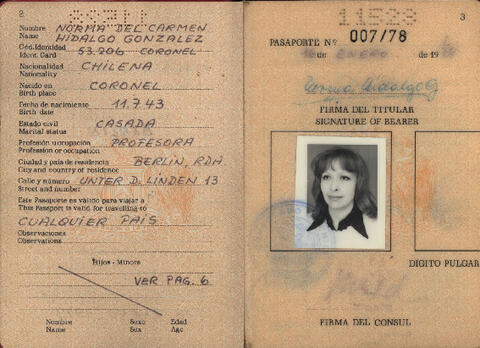 2
Nombre
Name
NORMA DEL CARMEN
HIDALGO GONZALEZ
Céd. Identidad
Ident. Card
53.206 CORONEL
Nacionalidad
Nationality
CHILENA
Nacido en
Birth place
CORONEL
Fecha de nacimiento
Birth date
11.7.43
Estado civil
Marital status
CASADA
Profesión u ocupación
Profession or occupation
PROFESORA
Ciudad y país de residencia
City and country of residence
BERLIN, RDA.
Calle y número
Street and number
UNTER D. LINDEN 13
Este Pasaporte es válido para viajar a
This Passport is valid for travelling to
CUALQUIER PAIS
Observaciones
Observations
Hijos - Minors
VER PAG. 6
Nombre Sexo Edad
Name Sex Age
3
PASAPORTE Nº 007/78
de ENERO de 19
Norma Hidalgo G
FIRMA DEL TITULAR
SIGNATURE OF BEARER
DIGITO PULGAR
FIRMA DEL CONSUL